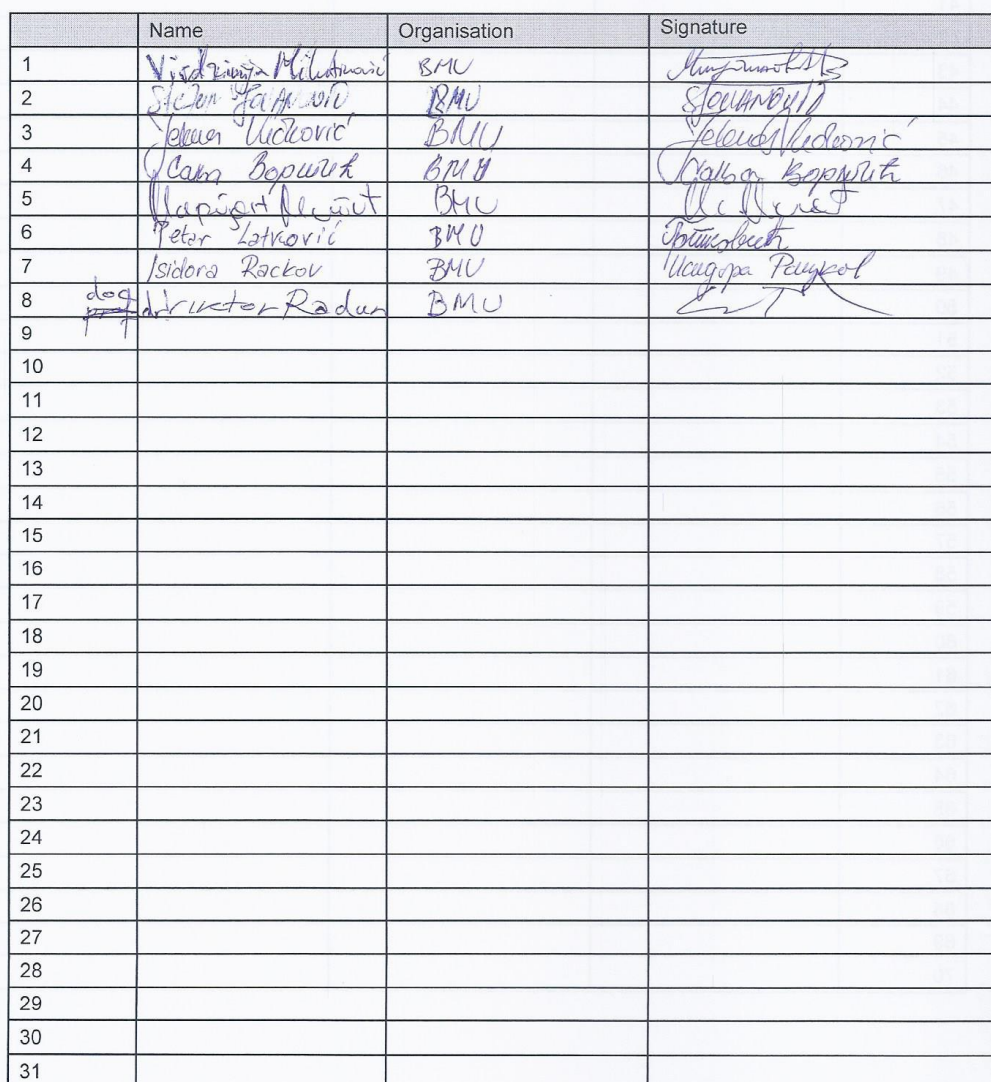 Name Organisation Signature
1 Virdzinija Milutinović BMU
2 Stefan Jovanović BMU SJOVANOVIĆ
3 Jelena Vučković BMU Jelena Vučković
4 Сања Ворпић BMU Сања Ворпић
5 BMU
6 Petar Latković BMU
7 Isidora Rackov BMU Исидора Рацков
8 doc dr Viktor Radun BMU
9
10
11
12
13
14
15
16
17
18
19
20
21
22
23
24
25
26
27
28
29
30
31